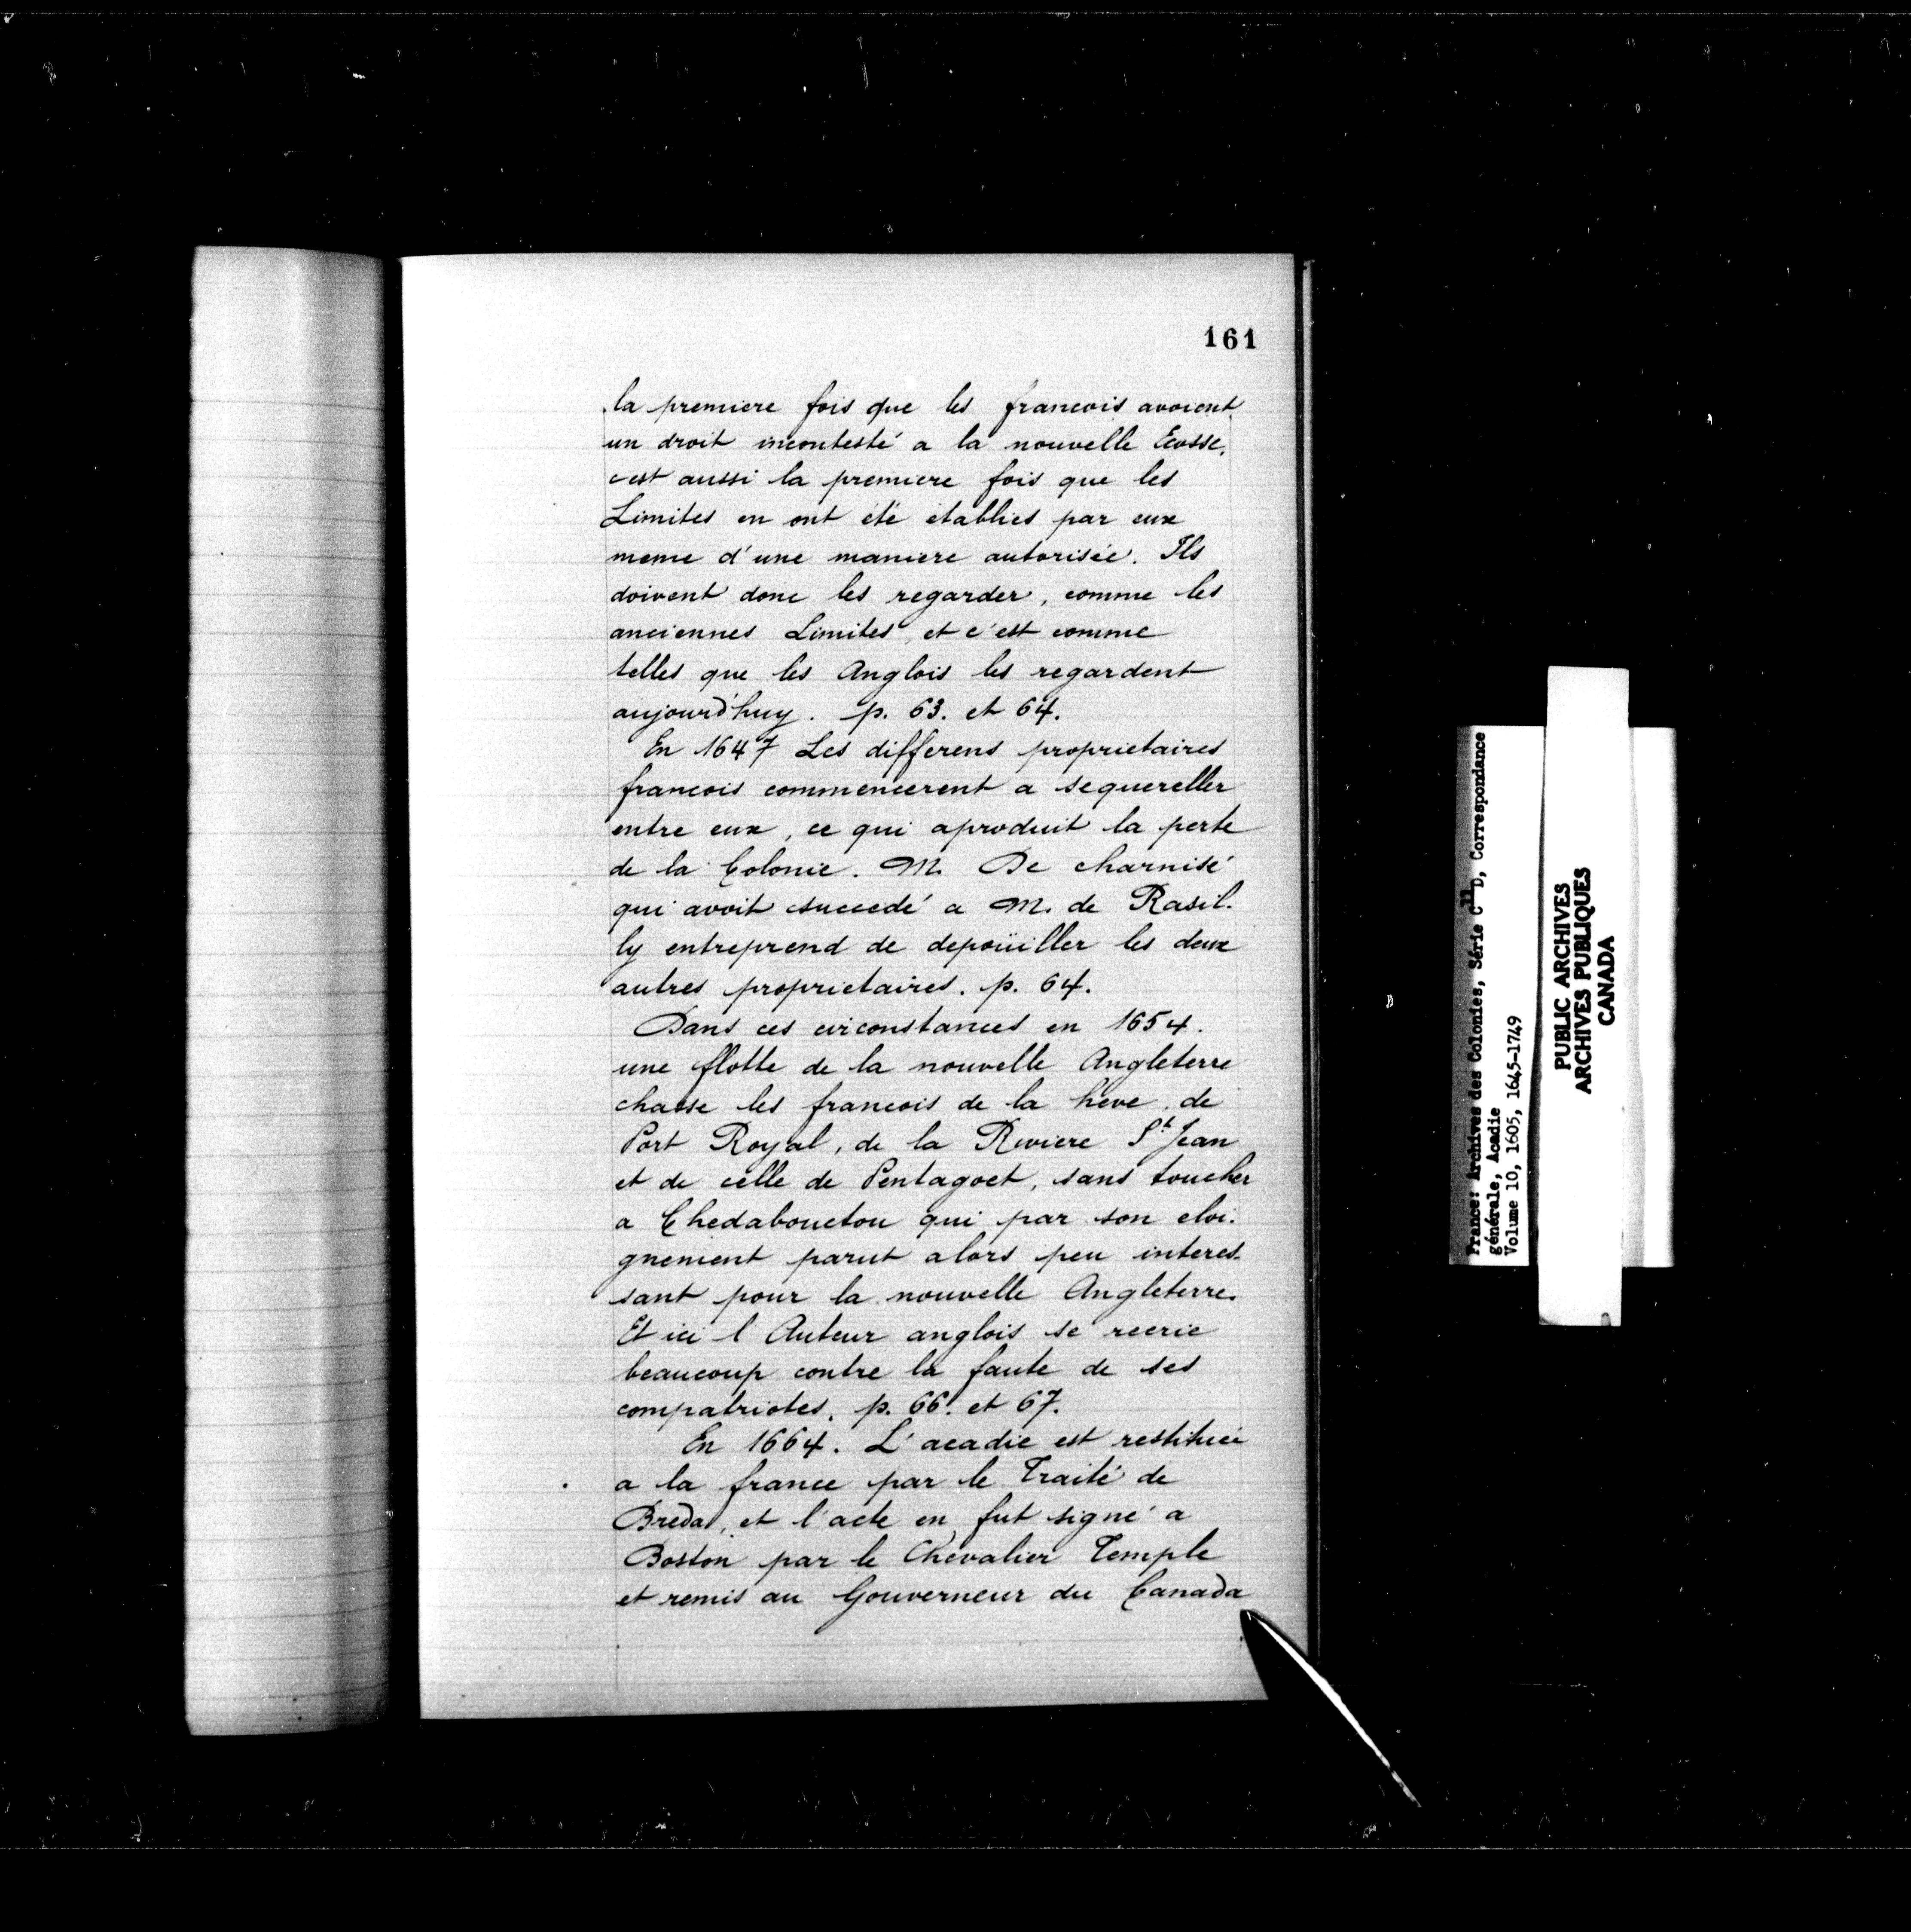 161
la premiere fois que les francois avoient
un droit incontesté a la nouvelle Ecosse,
c'est aussi la premiere fois que les
Limites en ont été etablies par eux
meme d'une maniere autorisée. Ils
doivent donc les regarder, comme les
anciennes Limites, et c'est comme
telles que les Anglois les regardent
aujourd'huy. p. 63. et 64.
En 1647 Les differens proprietaires
francois commencerent a sequereller
entre eux, ce qui aproduit la perte
de la Colonie. M. De charnisé
qui avoit succedé a M. de Rasil-
ly entreprend de depoüiller les deux
autres proprietaires. p. 64.
Dans ces circonstances en 1654.
une flotte de la nouvelle Angleterre
chasse les francois de la heve, de
Port Royal, de la Riviere St Jean
et de celle de Pentagoet, sans toucher
a Chedabouctou qui par son eloi-
gnement parut alors peu interes-
sant pour la nouvelle Angleterre.
Et ici l'Auteur anglois se recrie
beaucoup contre la faute de ses
compatriotes. p. 66. et 67.
En 1664. L'acadie est restituée
a la france par le Traité de
Breda, et l'acte en fut signé a
Boston par le Chevalier Temple
et remis au Gouverneur du Canada
France: Archives des Colonies, Série C11D, Correspondance
générale, Acadie
Volume 10, 1605, 1645-1749
PUBLIC ARCHIVES
ARCHIVES PUBLIQUES
CANADA